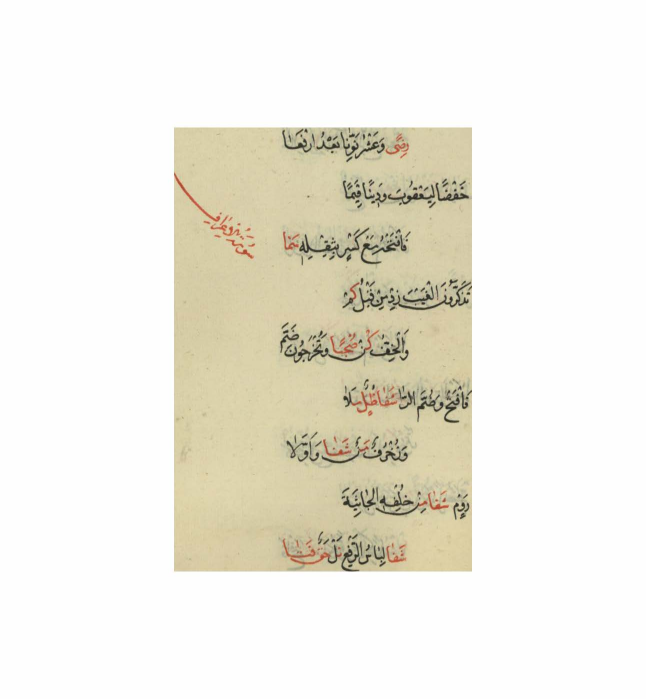 رضى وَعَشْر نَوِّنا بَعْدُ ارفَعَا
خَفْضًا ليَعْقُوبَ وَدِينًا قَيِّمًا
فَافْتَحْهُ مَعْ كَسْرٍ بِثِقْلِهِ سَمَا
تَذَكَّرُونَ الْغَيْبَ زِدْ مِنْ قَبْلُ كَمْ
وَالْخِفُّ كُنْ صُحْبًا وَتُخْرَجُونَ ضَمّ
فَافْتَحْ وَضُمَّ الرَّا شَفَا ظِلٌّ مَلَا
وَزُخْرُفٌ مَنْ شَفَا وَأَوَّلَا
رُوْمٍ شَفَا مِنْ خُلْفِهِ الْجَاثِيَةَ
شَفَا لِبَاسُ الرَّفْعِ نَلْ حَقّ فَتَا